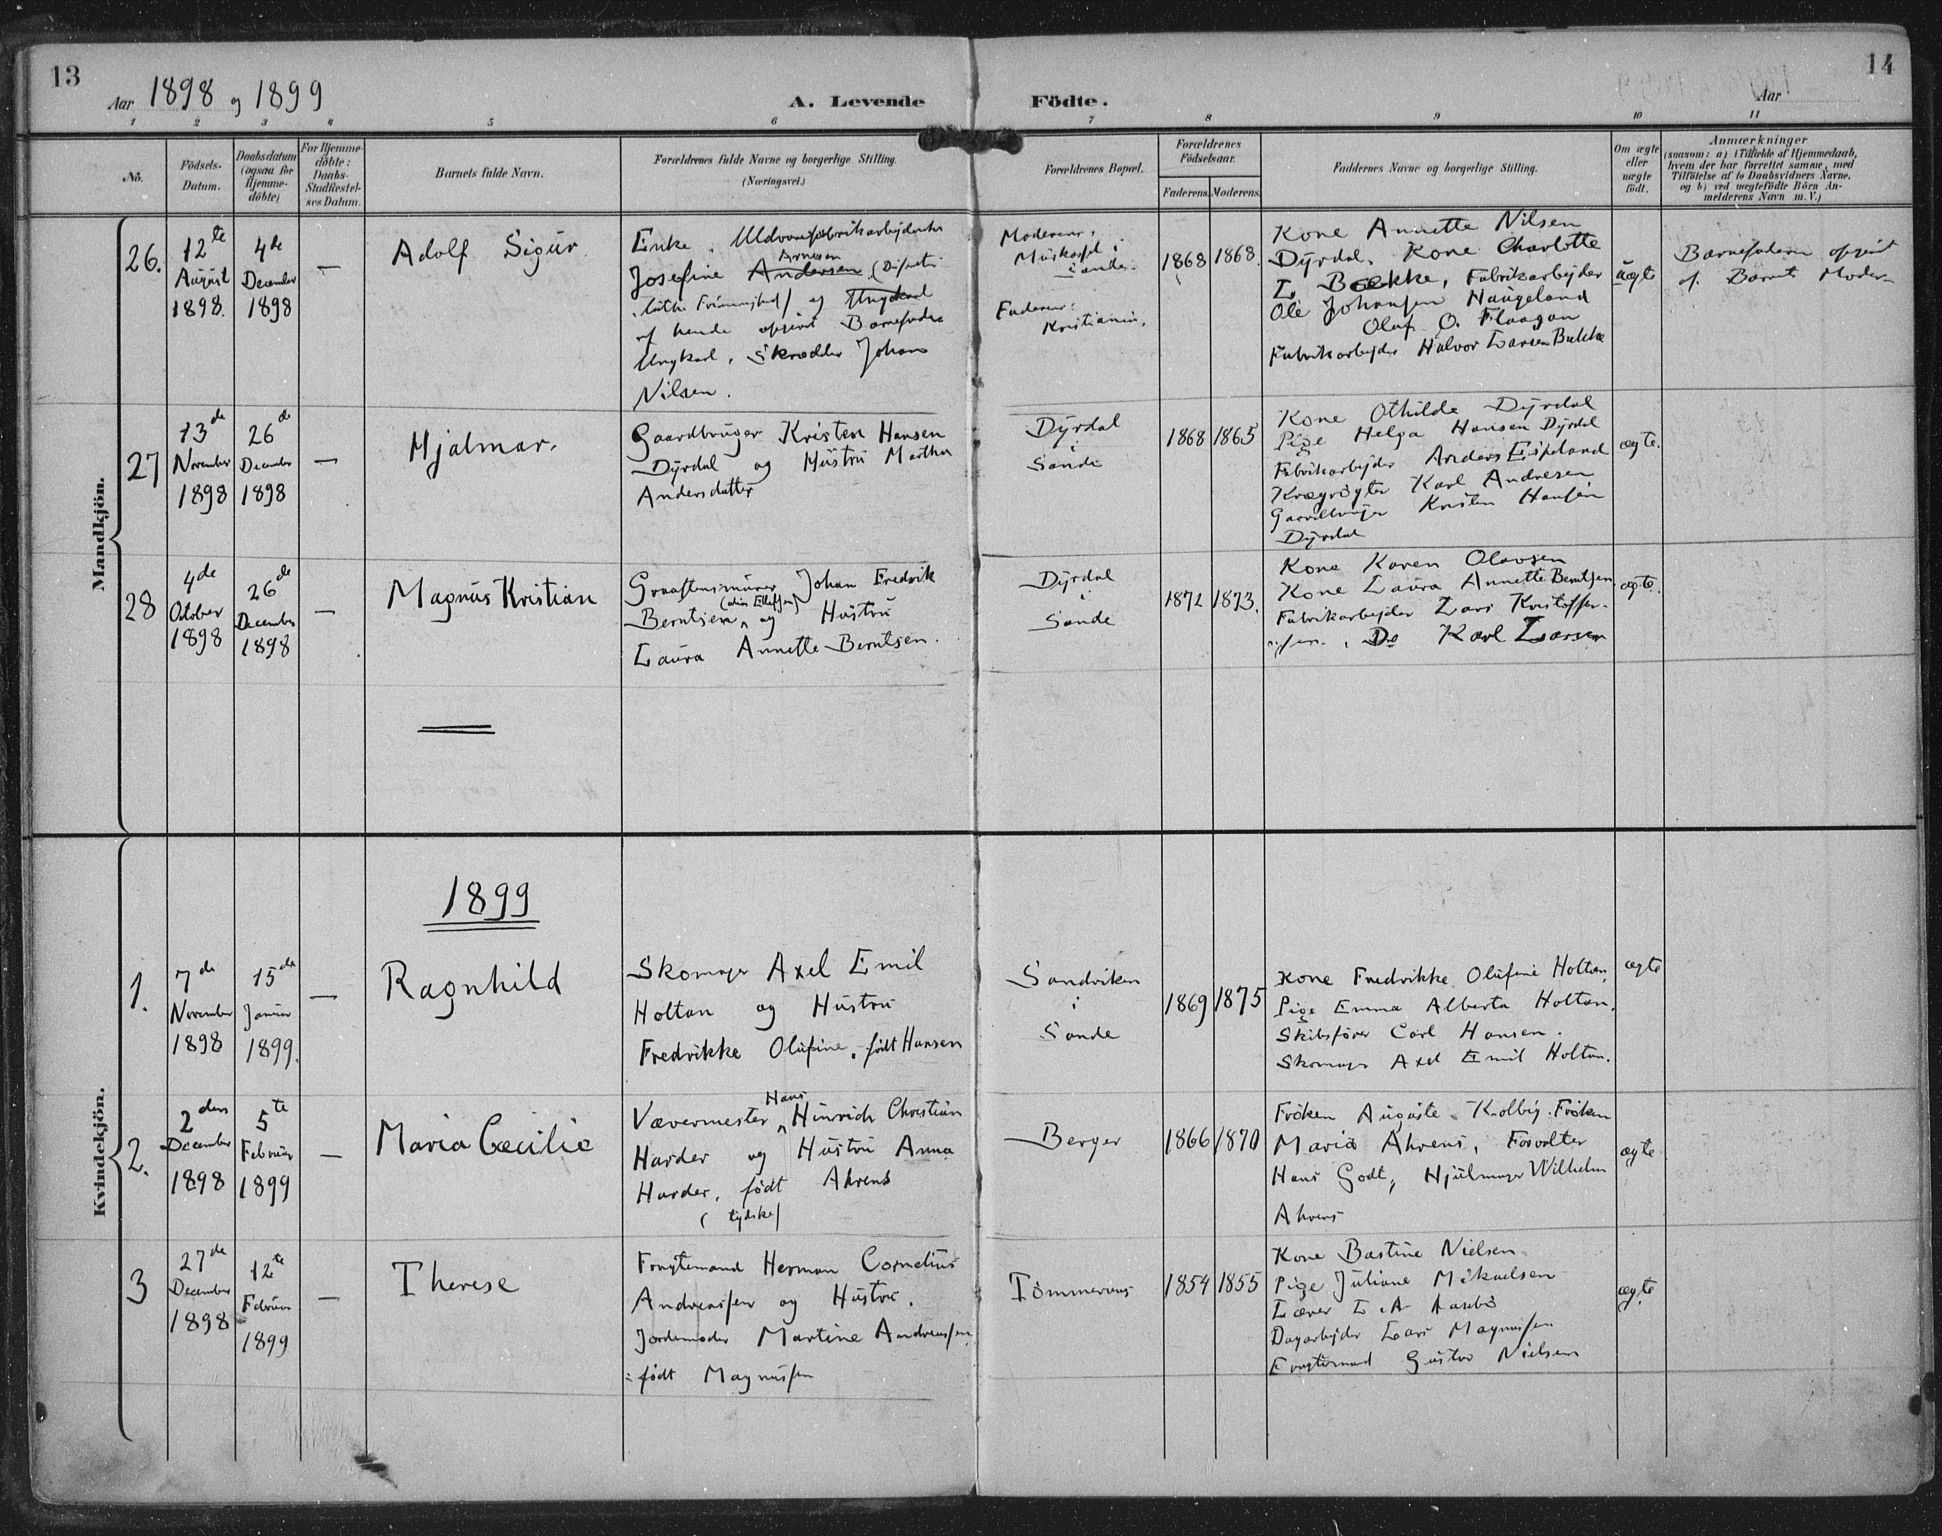 13
14
Aar 1898 og 1899
A. Levende Födte.
Aar
1 2 3 4 5 6 7 8 9 10 11
No.
Födsels-Datum.
Daabsdatum (ogsaa for Hjemmedöbte)
For Hjemmedöbte: Daabs-Stadfæstelses Datum.
Barnets fulde Navn.
Forældrenes fulde Navne og borgerlige Stilling.
(Næringsvei.)
Forældrenes Bopæl.
Forældrenes Födselsaar.
Faderens. Moderens.
Faddernes Navne og borgerlige Stilling.
Om ægte eller uægte födt.
Anmærkninger
(saasom: a) i Tilfælde af Hjemmedaab,
hvem der har forrettet samme, med
Tilföielse af to Daabsvidners Navne,
og b) ved uægtefödte Börn An-
melderens Navn m. V.)
Mandkjön.
26.
12te August 1898.
4de December 1898
—
Adolf Sigur
Enke, Uldvarefabrikarbejderske
Arnesen
Josefine Andersen
og Ungkarl
af hende opgivet Barnefader
Ungkarl, Skrædder Johan
Nilsen.
Moderens:
Sande.
Faderens:
Kristiania.
1868 1868.
Kone Annette Nilsen
Dyrdal, Kone Charlotte
L. Bække, Fabrikarbejder
Ole Johansen Haugeland
Olaf O. Flaagan
Fabrikarbejder Halvor Larsen Bække
uægte
Barnefaderen opgivet
af Barnets Moder
27
13de November 1898
26de December 1898
—
Hjalmar.
Gaardbruger Kristen Hansen
Dyrdal og Hustru Marthe
Andersdatter
Dyrdal
i
Sande
1868 1865
Kone Othilde Dyrdal
Pige Helga Hansen Dyrdal
Fabrikarbejder Anders Espeland
Kreaturrögter Karl Andresen
Gaardbruger Kristen Hansen
Dyrdal
ægte.
28
4de October 1898
26de December 1898
—
Magnus Kristian
Graastensmurer Johan Fredrik
(alias Ellefsen)
Berntsen og Hustru
Laura Annette Berntsen.
Dyrdal
i
Sande
1872 1873.
Kone Karen Olavsen
Kone Laura Annette Berntsen
Fabrikarbejder Lars Kristoffer-
sen, Do Karl Larsen
ægte.
Kvindekjön.
1899
1.
7de November 1898
15de Januar 1899.
—
Ragnhild
Skomager Axel Emil
Holtan og Hustru
Fredrikke Olufine, födt Hansen
Sandviken
i
Sande
1869 1875
Kone Fredrikke Olufine Holtan,
Pige Emma Alberta Holtan.
Skibsförer Carl Hansen.
Skomager Axel Emil Holtan.
ægte
2.
2den December 1898
5te Februar 1899
—
Maria Cæcilie
Hans
Vævermester Hinrich Christian
Harder og Hustru Anna
Harder, födt Ahrens
(tydske)
Berger
1866 1870
Fröken Auguste Kolbig. Fröken
Maria Ahrens, Forvalter
Hans Godt, Hjulmager Wilhelm
Ahrens
ægte
3
27de December 1898
12te Februar 1899
—
Therese
Fragtemand Herman Cornelius
Andreassen og Hustru,
Jordemoder Martine Andreassen
födt Magnussen
Tömmeraas
1854 1855
Kone Bastine Nielsen
Pige Juliane Mikaelsen
Lærer L. A. Aasebö
Dagarbejder Lars Magnussen
Fragtemand Gustav Nielsen
ægte